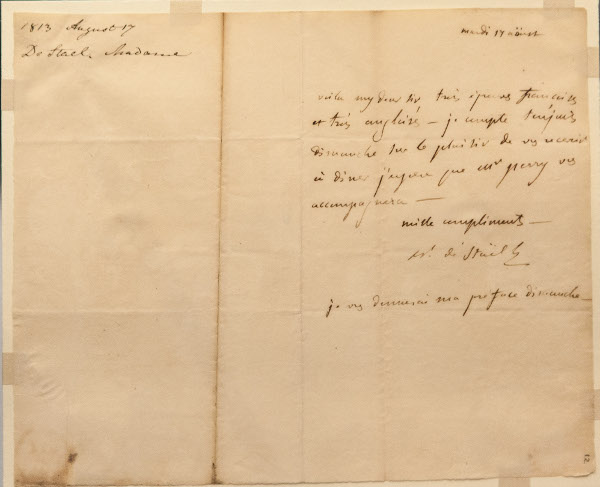 1813 August 17
De Stael, Madame
mardi 17 aoust
voila my dear sir, trois epreuves françaises
et trois anglaises – je compte toujours
dimanche sur le plaisir de vous recevoir
à diner j'espere que mr perry vous
accompagnera –
mille compliments –
de Staël h
je vous donnerai ma preface dimanche –
12